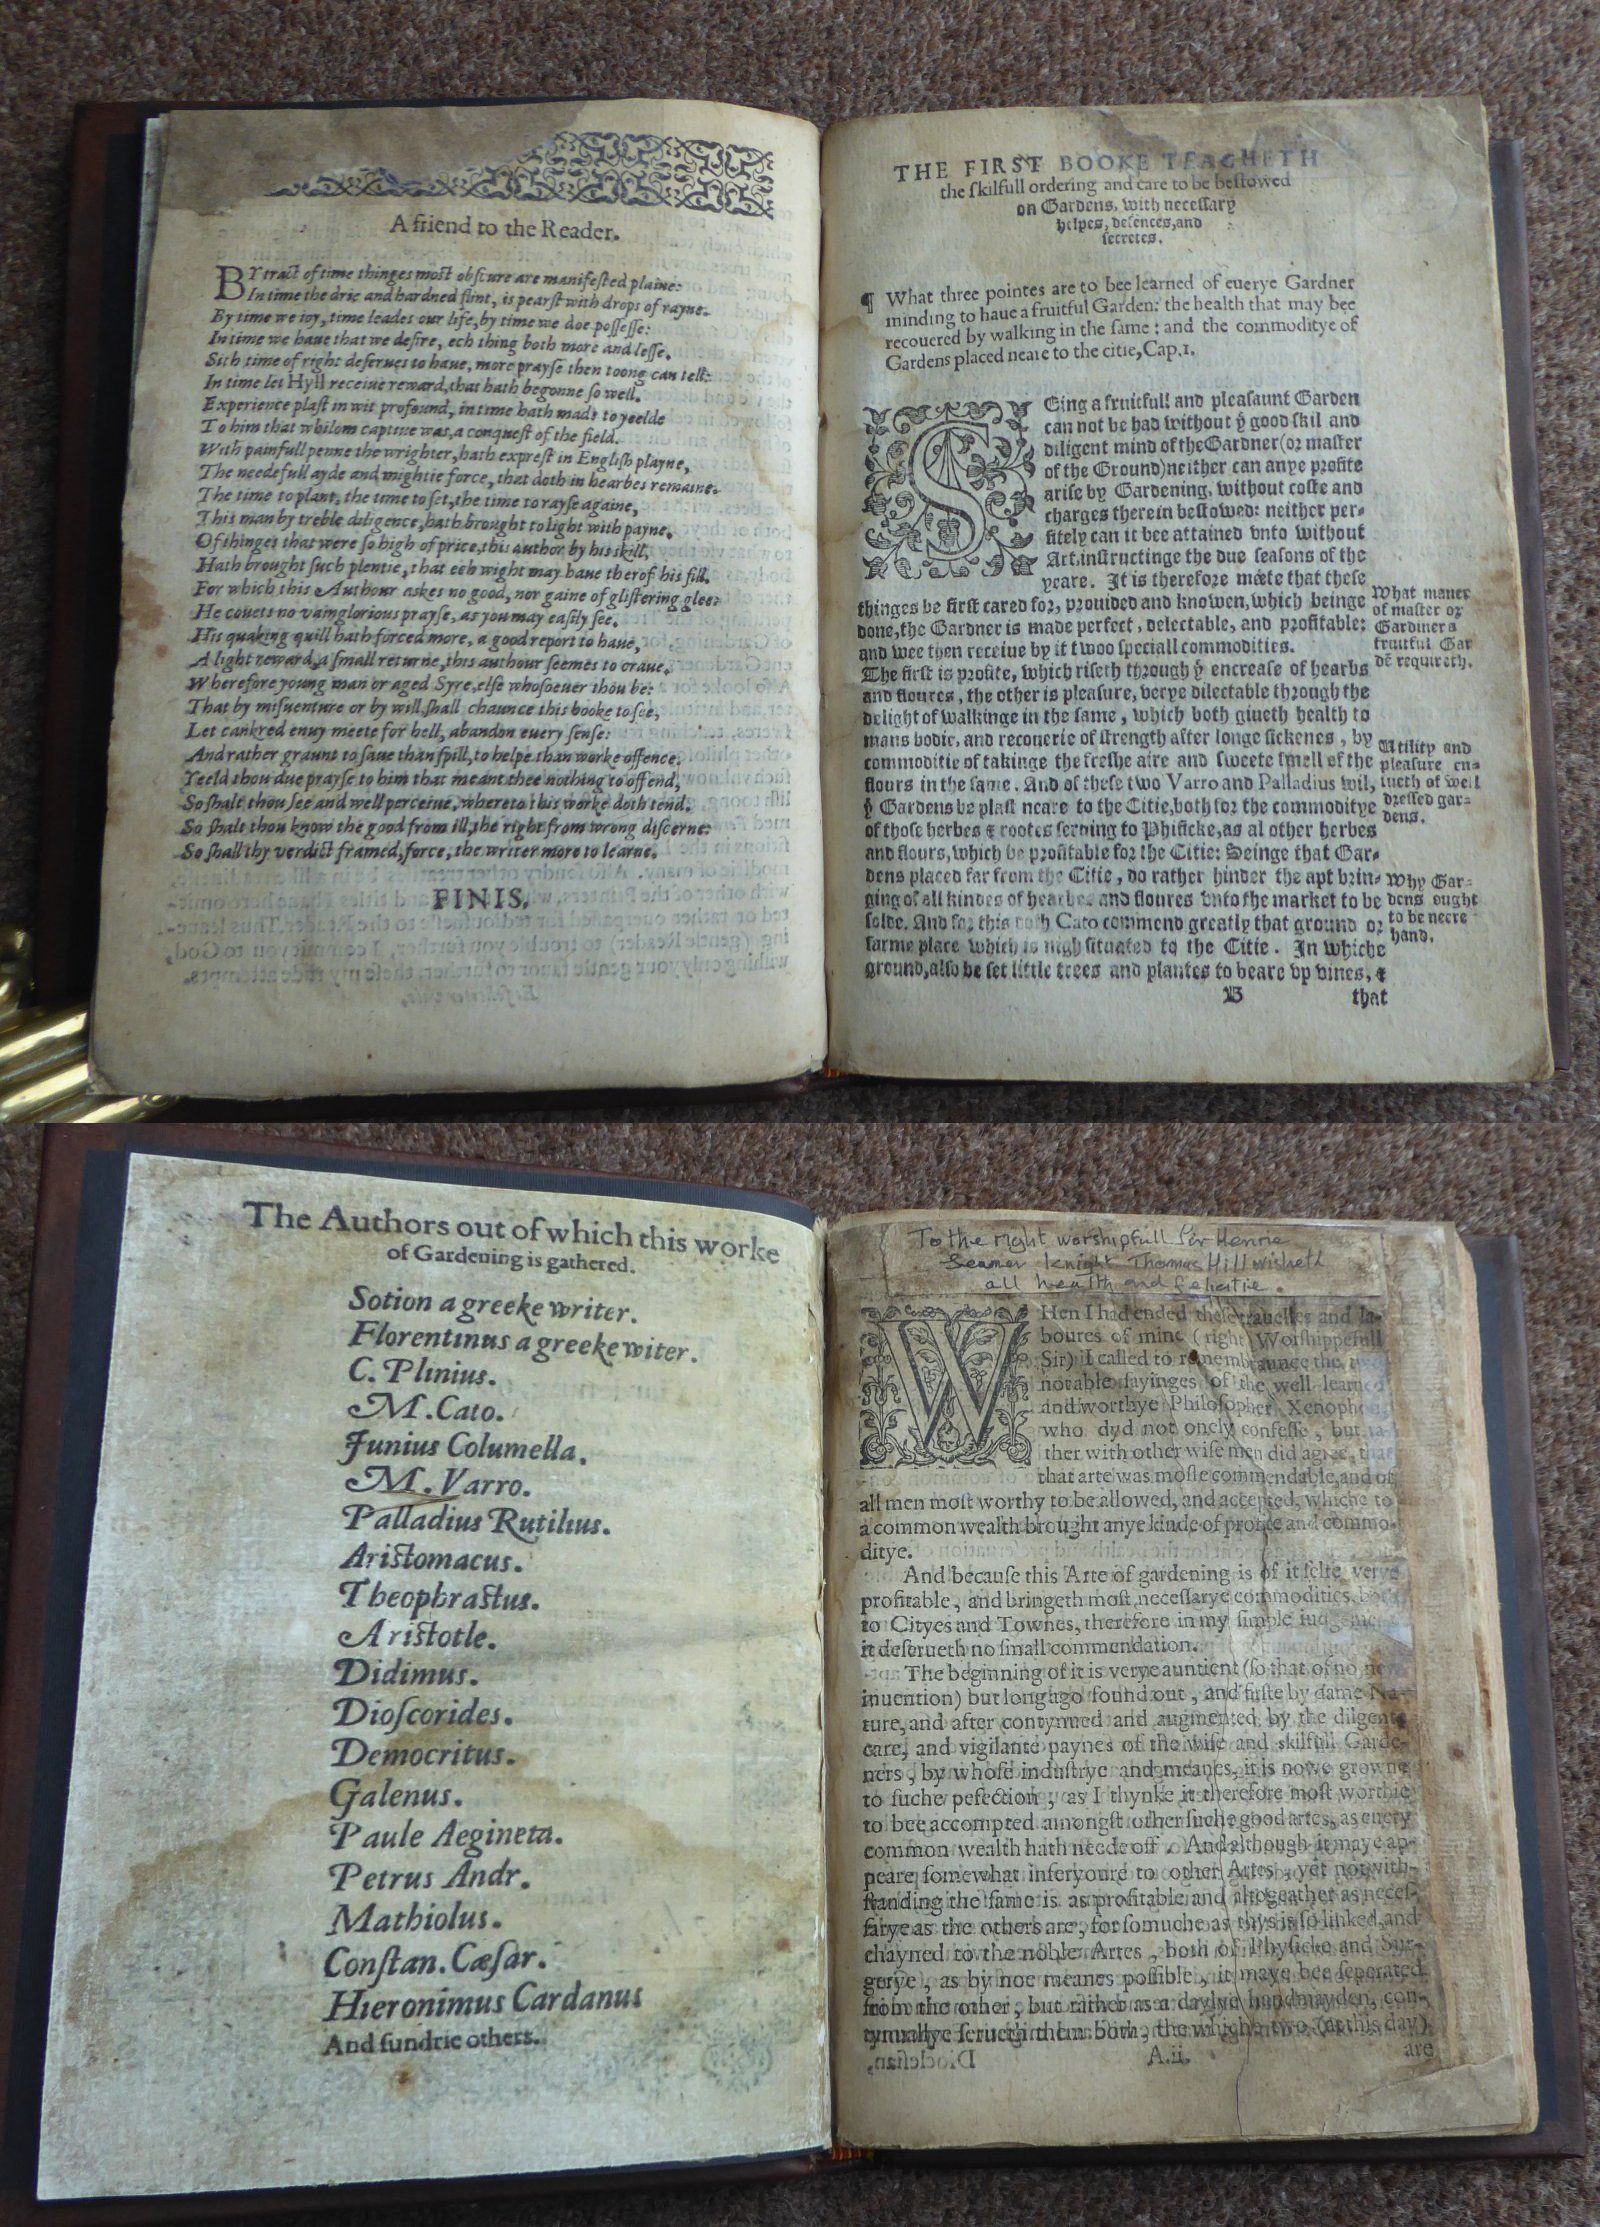 A friend to the Reader.
BY tract of time thinges most obscure are manifested plaine:
In time the drie and hardned flint, is pearst with drops of rayne.
By time we ioy, time leades our life, by time we doe possesse:
In time we haue that we desire, ech thing both more and lesse.
Sith time of right deserues to haue, more prayse then toong can tell:
In time let Hyll receiue reward, that hath begonne so well.
Experience plast in wit profound, in time hath made to yeelde
To him that whilom captiue was, a conquest of the field.
With painfull penne the wrighter, hath exprest in English playne,
The needefull ayde and mightie force, that doth in hearbes remaine.
The time to plant, the time to set, the time to rayse againe,
This man by treble diligence, hath brought to light with payne.
Of thinges that were so high of price, this author by his skill,
Hath brought such plentie, that ech wight may haue therof his fill.
For which this Authour askes no good, nor gaine of glistering glee:
He couets no vainglorious prayse, as you may easily see.
His quaking quill hath forced more, a good report to haue,
A light reward, a small returne, this authour seemes to craue.
Wherefore young man or aged Syre, else whosoeuer thou be:
That by misuenture or by will, shall chaunce this booke to see,
Let cankred enuy meete for hell, abandon euery sense:
And rather graunt to saue than spill, to helpe than worke offence.
Yeeld thou due prayse to him that meant thee nothing to offend,
So shalt thou see and well perceiue, whereto this worke doth tend.
So shalt thou know the good from ill, the right from wrong discerne:
So shall thy verdict framed, force, the writer more to learne.
FINIS.
THE FIRST BOOKE TEACHETH
the skilfull ordering and care to be bestowed
on Gardens, with necessary
helpes, defences, and
secretes.
¶ What three pointes are to bee learned of euerye Gardner
minding to haue a fruitful Garden: the health that may bee
recouered by walking in the same: and the commoditye of
Gardens placed neare to the citie, Cap.1.
SEing a fruitfull and pleasaunt Garden
can not be had without ẏ good skil and
diligent mind of the Gardner (or master
of the Ground) neither can anye profite
arise by Gardening, without coste and
charges therein bestowed: neither per-
fitely can it bee attained vnto without
Art, instructinge the due seasons of the
yeare. It is therefore méete that these
thinges be first cared for, prouided and knowen, which beinge
done, the Gardner is made perfect, delectable, and profitable:
and wee then receiue by it twoo speciall commodities.
The first is profite, which riseth through ẏ encrease of hearbs
and floures, the other is pleasure, verye dilectable through the
delight of walkinge in the same, which both giueth health to
mans bodie, and recouerie of strength after longe sickenes, by
commoditie of takinge the freshe aire and sweete smell of the
flours in the same. And of these two Varro and Palladius wil,
ẏ Gardens be plast neare to the Citie, both for the commoditye
of those herbes & rootes seruing to Phisicke, as al other herbes
and flours, which be profitable for the Citie: Seinge that Gar-
dens placed far from the Citie, do rather hinder the apt brin-
ging of all kindes of hearbes and floures vnto the market to be
solde. And for this doth Cato commend greatly that ground or
farme place which is nigh situated to the Citie. In whiche
ground, also be set little trees and plantes to beare vp vines, &
B that
What maner
of master or
Gardiner a
fruitful Gar
dē requireth.
Utility and
pleasure en-
sueth of well
dressed gar-
dens.
Why Gar-
dens ought
to be neere
hand.
The Authors out of which this worke
of Gardening is gathered.
Sotion a greeke writer.
Florentinus a greeke witer.
C. Plinius.
M. Cato.
Junius Columella.
M. Varro.
Palladius Rutilius.
Aristomacus.
Theophrastus.
Aristotle.
Didimus.
Dioscorides.
Democritus.
Galenus.
Paule Aegineta.
Petrus Andr.
Mathiolus.
Constan. Cæsar.
Hieronimus Cardanus
And sundrie others.
To the right worshipfull Sir Henrie
Seamer knight Thomas Hill wisheth
all health and felicitie.
WHen I had ended these trauelles and la-
boures of mine (right Worshippefull
Sir) I called to remembraunce the
notable sayinges of the well learned
and worthye Philosopher Xenophon
who dyd not onely confesse, but ra-
ther with other wise men did agree, that
that arte was moste commendable, and of
all men most worthy to be allowed, and accepted, whiche to
a common wealth brought anye kinde of profite and commo-
ditye.
And because this Arte of gardening is of it selfe verye
profitable, and bringeth most necessarye commodities, both
to Cityes and Townes, therefore in my simple iudgement
it deserueth no small commendation.
The beginning of it is verye auntient (so that of no new
inuention) but long ago found out, and firste by dame Na-
ture, and after contynued and augmented by the dilgente
care, and vigilante paynes of the wise and skilfull Garde-
ners, by whose industrye and meanes, it is nowe growne
to suche pefection, as I thynke it therefore most worthie
to bee accompted amongst other suche good artes, as euery
common wealth hath neede off. And although it maye ap-
peare somewhat inferyoure to other Artes, yet notwith-
standing the same is as profitable and altogeather as neces-
sarye as the others are, for somuche as thys is so linked, and
chayned to the noble Artes, both of Physicke and Sur-
gerye, as by noe meanes possible, it maye bee seperated
from the other, but rather as a daylye handmayden, con-
tynuallye serueth them both, the which two (at this day)
A.ii. are